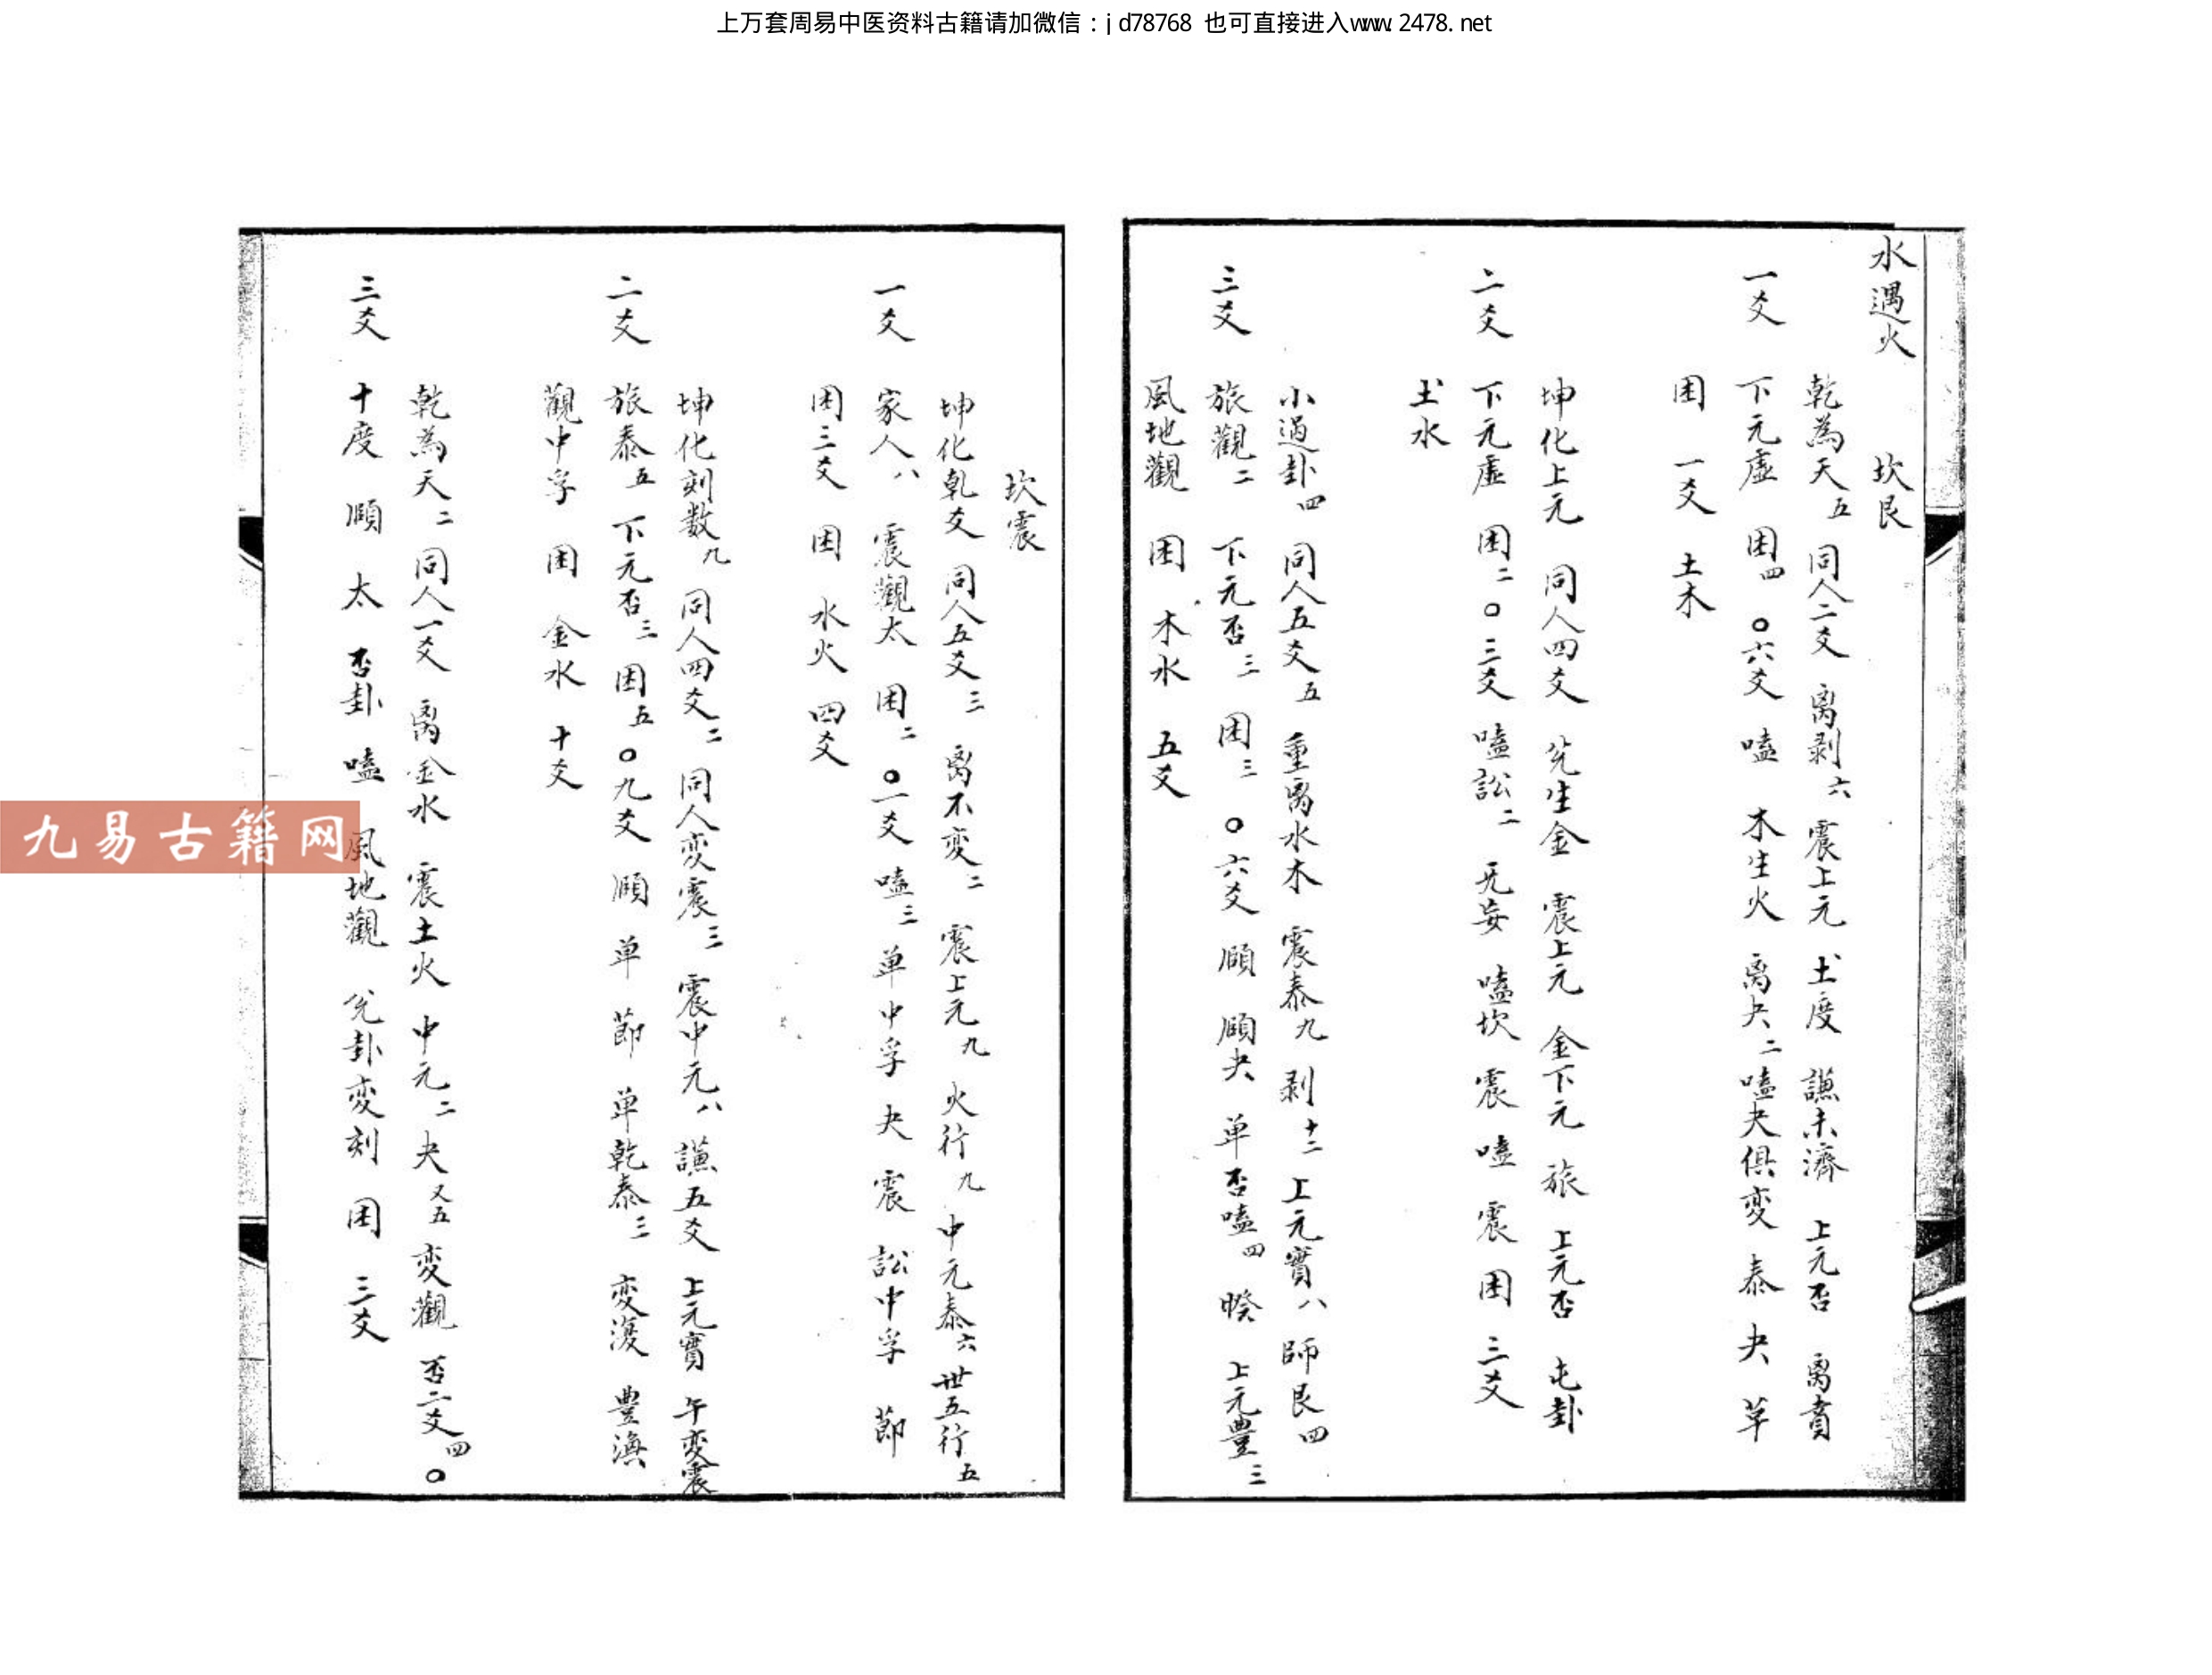 上万套周易中医资料古籍请加微信：jd78768 也可直接进入www.2478.net
水遇火 坎艮
乾為天五 同人二爻 离剥六 震上元 土度 謙未濟 上元否 离賁
一爻 下元虛 困四 〇六爻 嗑 木生火 离夬二 嗑夬俱変 泰 夬 革
困 一爻 土木
坤化上元 同人四爻 先生金 震上元 金下元 旅 上元否 屯卦
二爻 下元虛 困二 〇三爻 嗑訟二 无妄 嗑坎 震 嗑 震 困 三爻
土水
小過卦四 同人五爻五 重离水木 震泰九 剥十二 上元實八 師艮四
三爻 旅觀二 下元否三 困三 〇六爻 頤 頤夬 单 否嗑四 睽 上元豊三
風地觀 困 木水 五爻
坎震
坤化乾爻 同人五爻三 离不变二 震上元九 火行九 中元泰六 世五行五
一爻 家人八 震觀太 困二 〇一爻 嗑三 单中孚 夬 震 訟中孚 節
困三爻 困 水火 四爻
坤化刻数九 同人四爻二 同人変震三 震中元八 謙五爻 上元實 午変震
二爻 旅泰五 下元否三 困五 〇九爻 頤 单 節 单乾泰三 変渙 豊渙
觀中孚 困 金水 十爻
乾為天二 同人一爻 离金水 震土火 中元二 夬又五 変觀 否二爻四 〇
三爻 十度 頤 太 否卦 嗑 風地觀 兌卦変刻 困 三爻
九易古籍网